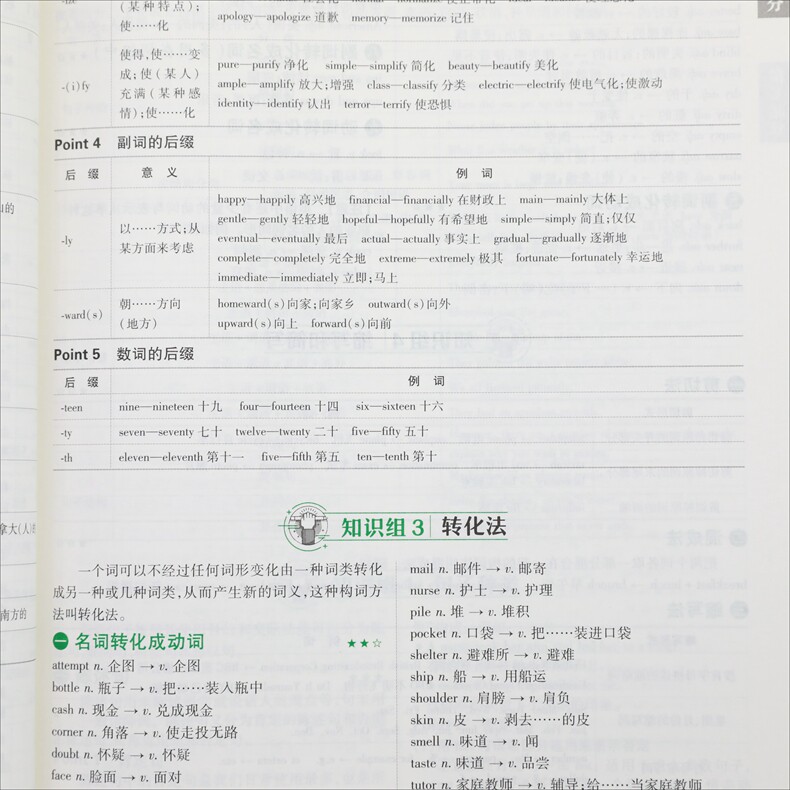 (某种特点);
使……化
apology—apologize 道歉 memory—memorize 记住
-(i)fy
使得,使……变
成;使(某人)
充满(某种感
情);使……化
pure—purify 净化 simple—simplify 简化 beauty—beautify 美化
ample—amplify 放大;增强 class—classify 分类 electric—electrify 使电气化;使激动
identity—identify 认出 terror—terrify 使恐惧
Point 4 副词的后缀
后 缀 意 义 例 词
-ly
以……方式;从
某方面来考虑
happy—happily 高兴地 financial—financially 在财政上 main—mainly 大体上
gentle—gently 轻轻地 hopeful—hopefully 有希望地 simple—simply 简直;仅仅
eventual—eventually 最后 actual—actually 事实上 gradual—gradually 逐渐地
complete—completely 完全地 extreme—extremely 极其 fortunate—fortunately 幸运地
immediate—immediately 立即;马上
-ward(s)
朝……方向
(地方)
homeward(s)向家;向家乡 outward(s)向外
upward(s)向上 forward(s)向前
Point 5 数词的后缀
后 缀 例 词
-teen nine—nineteen 十九 four—fourteen 十四 six—sixteen 十六
-ty seven—seventy 七十 twelve—twenty 二十 five—fifty 五十
-th eleven—eleventh 第十一 five—fifth 第五 ten—tenth 第十
知识组 3 转化法
一个词可以不经过任何词形变化由一种词类转化
成另一种或几种词类,从而产生新的词义,这种构词方
法叫转化法。
一 名词转化成动词 ★★☆
attempt n. 企图 → v. 企图
bottle n. 瓶子 → v. 把……装入瓶中
cash n. 现金 → v. 兑成现金
corner n. 角落 → v. 使走投无路
doubt n. 怀疑 → v. 怀疑
face n. 脸面 → v. 面对
mail n. 邮件 → v. 邮寄
nurse n. 护士 → v. 护理
pile n. 堆 → v. 堆积
pocket n. 口袋 → v. 把……装进口袋
shelter n. 避难所 → v. 避难
ship n. 船 → v. 用船运
shoulder n. 肩膀 → v. 肩负
skin n. 皮 → v. 剥去……的皮
smell n. 味道 → v. 闻
taste n. 味道 → v. 品尝
tutor n. 家庭教师 → v. 辅导;给……当家庭教师